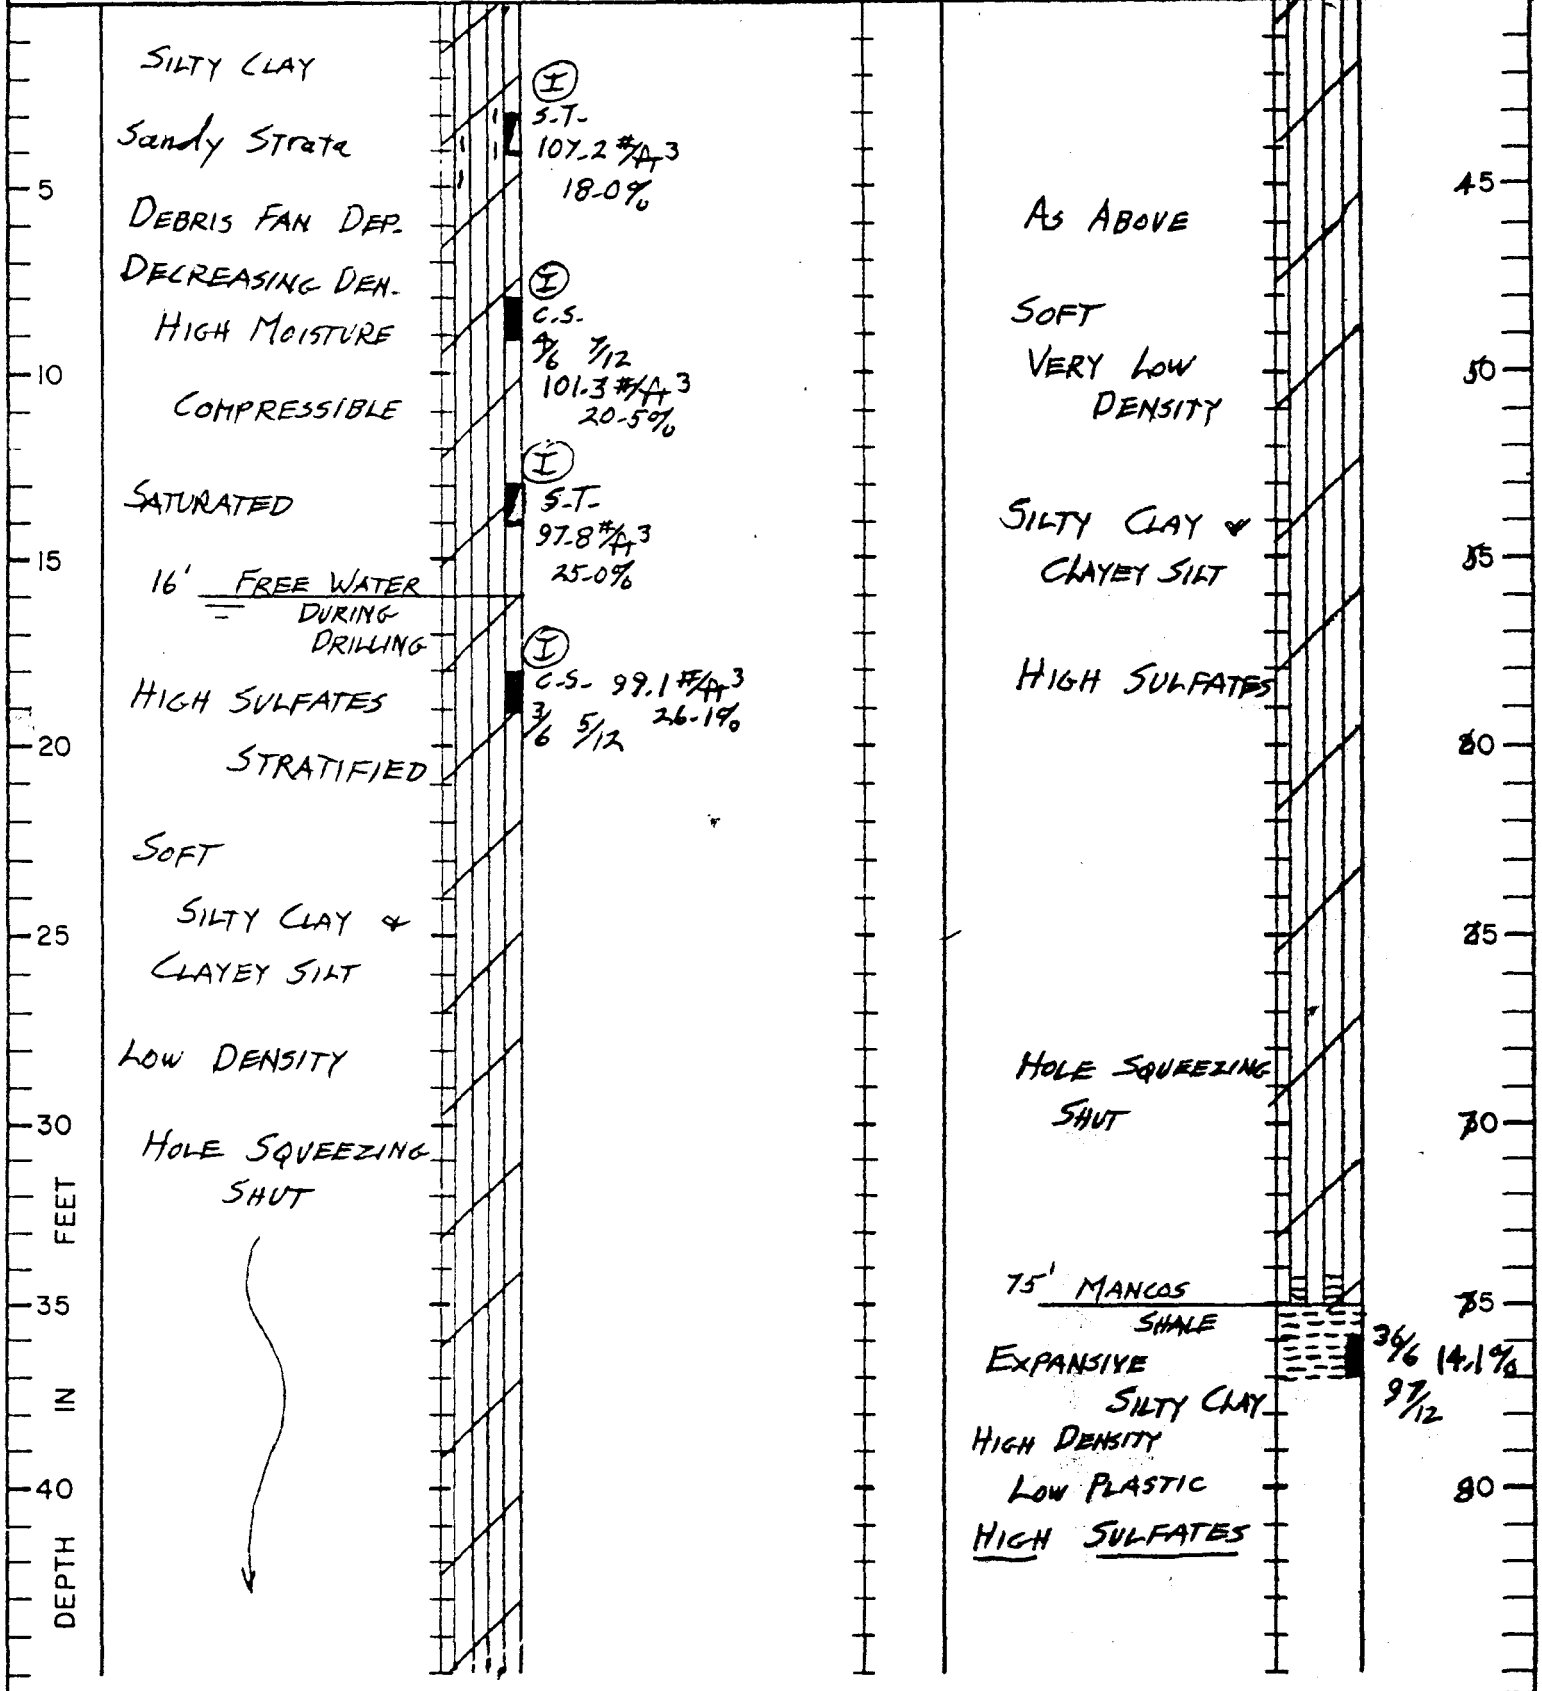 SILTY CLAY
Sandy Strata
DEBRIS FAN DEP.
DECREASING DEN.
HIGH MOISTURE
COMPRESSIBLE
SATURATED
16' FREE WATER
DURING
DRILLING
HIGH SULFATES
STRATIFIED
SOFT
SILTY CLAY &
CLAYEY SILT
LOW DENSITY
HOLE SQUEEZING
SHUT
5
10
15
20
25
30
35
40
DEPTH IN FEET
I
S.T.
107.2 #/ft3
18.0%
I
C.S.
4/6 7/12
101.3 #/ft3
20.5%
I
S.T.
97.8 #/ft3
25.0%
I
C.S. 99.1 #/ft3
3/6 5/12 26.1%
AS ABOVE
SOFT
VERY LOW
DENSITY
SILTY CLAY &
CLAYEY SILT
HIGH SULFATES
HOLE SQUEEZING
SHUT
75' MANCOS
SHALE
EXPANSIVE
SILTY CLAY
HIGH DENSITY
LOW PLASTIC
HIGH SULFATES
36/6 14.1%
97/12
45
50
55
60
65
70
75
80